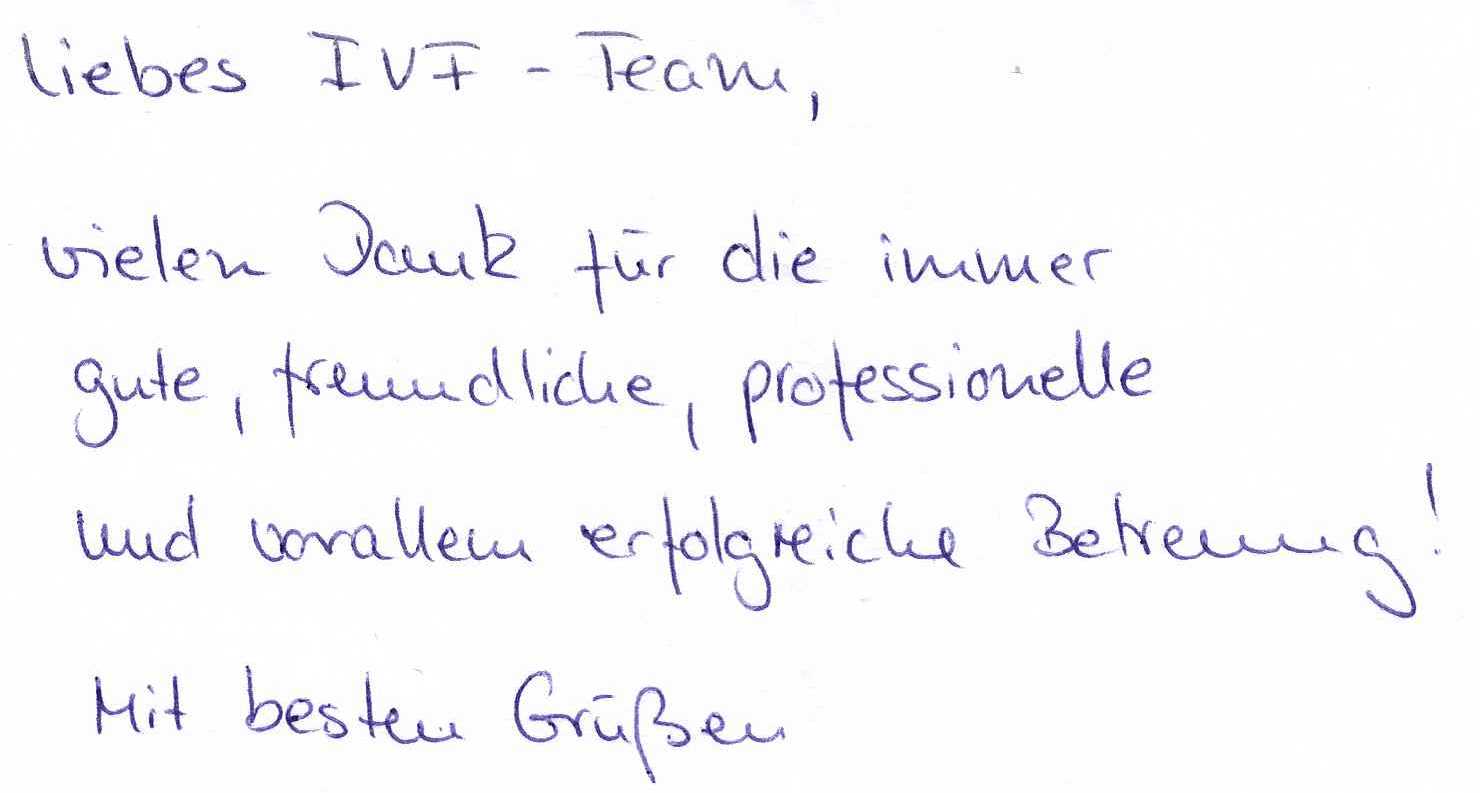 liebes IVF - Team,
vielen Dank für die immer
gute, freundliche, professionelle
und vorallem erfolgreiche Betreuung!
Mit besten Grüßen